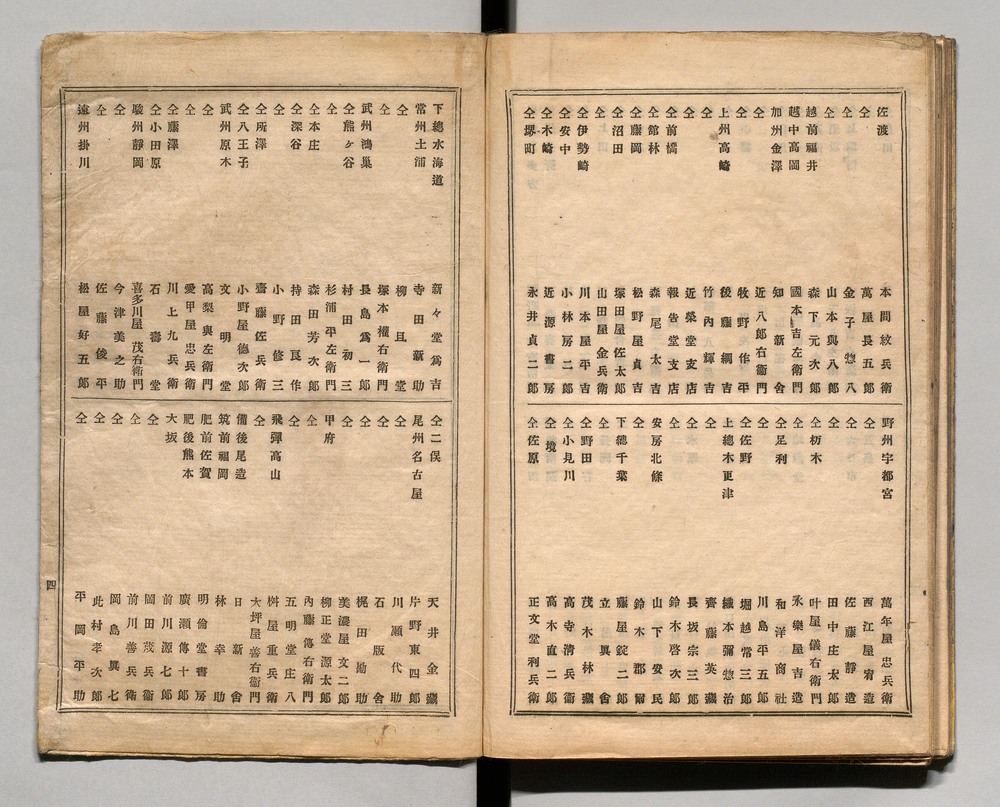 佐渡 本間紋兵衛
仝 萬屋長五郎
仝 金子惣八
仝 山本與八郎
越前福井 森下元次郎
越中高岡 國本吉左衛門
加州金澤 知新舍
仝 近八郎右衛門
仝 牧野作平
上州高崎 後藤綱吉
仝 竹內輝吉
仝 近榮堂支店
仝前橋 報告堂支店
仝館林 森尾太吉
仝藤岡 松野屋貞吉
仝沼田 塚田屋佐太郎
仝 山田屋金兵衛
仝伊勢崎 川本屋平吉
仝安中 小林房二郎
仝木崎 近源書房
仝堺町 永井貞二郎
野州宇都宮 萬年屋忠兵衛
仝 西江屋宥造
仝 佐藤靜造
仝 田中庄太郎
仝栃木 叶屋儀右衛門
仝 永樂屋吉造
仝足利 和洋上商社
仝 川島平五郎
仝佐野 堀越常三郎
上總木更津 織本彌惣治
仝 齊藤英藏
仝 長坂宗三郎
仝 鈴木啓次郎
安房北條 山下安民
仝 鈴木郡爾
下總千葉 藤屋錠二郎
仝 立眞舍
仝野田 茂木林藏
仝小見川 高寺清兵衛
仝境 高木直二郎
仝佐原 正文堂利兵衛
下總水海道 新々堂爲吉
常州土浦 寺田新助
仝 柳旦堂
仝 塚本權右衛門
武州鴻巣 長島爲一郎
仝熊ヶ谷 村田初三
仝 杉浦平左衛門
仝本庄 森田芳次郎
仝深谷 持田良作
仝 小野修三
仝所澤 齋藤佐兵衛
仝八王子 小野屋德次郎
武州原木 文明堂
仝 高梨與左衛門
仝 愛甲屋忠兵衛
仝藤澤 川上九兵衛
仝小田原 石壽堂
駿州靜岡 喜多川屋茂右衛門
仝 今津美之助
仝 佐藤俊平
遠州掛川 松屋好五郎
仝二俣 天井金藏
尾州名古屋 片野東四郎
仝 川瀬代助
仝 石版舍
仝 梶田勘助
仝 美濃屋文二郎
甲府 柳正堂源太郎
仝 內藤傳右衛門
仝 五明堂庄八
飛彈高山 桝屋重兵衛
仝 大坪屋善右衛門
備後尾造 日新舍
筑前福岡 林幸助
肥前佐賀 明倫堂書房
肥後熊本 廣瀬傳十郎
大坂 前川源七郎
仝 岡田茂兵衛
仝 前川善兵衛
仝 岡島眞七
仝 此村孝次郎
仝 平岡平助
四